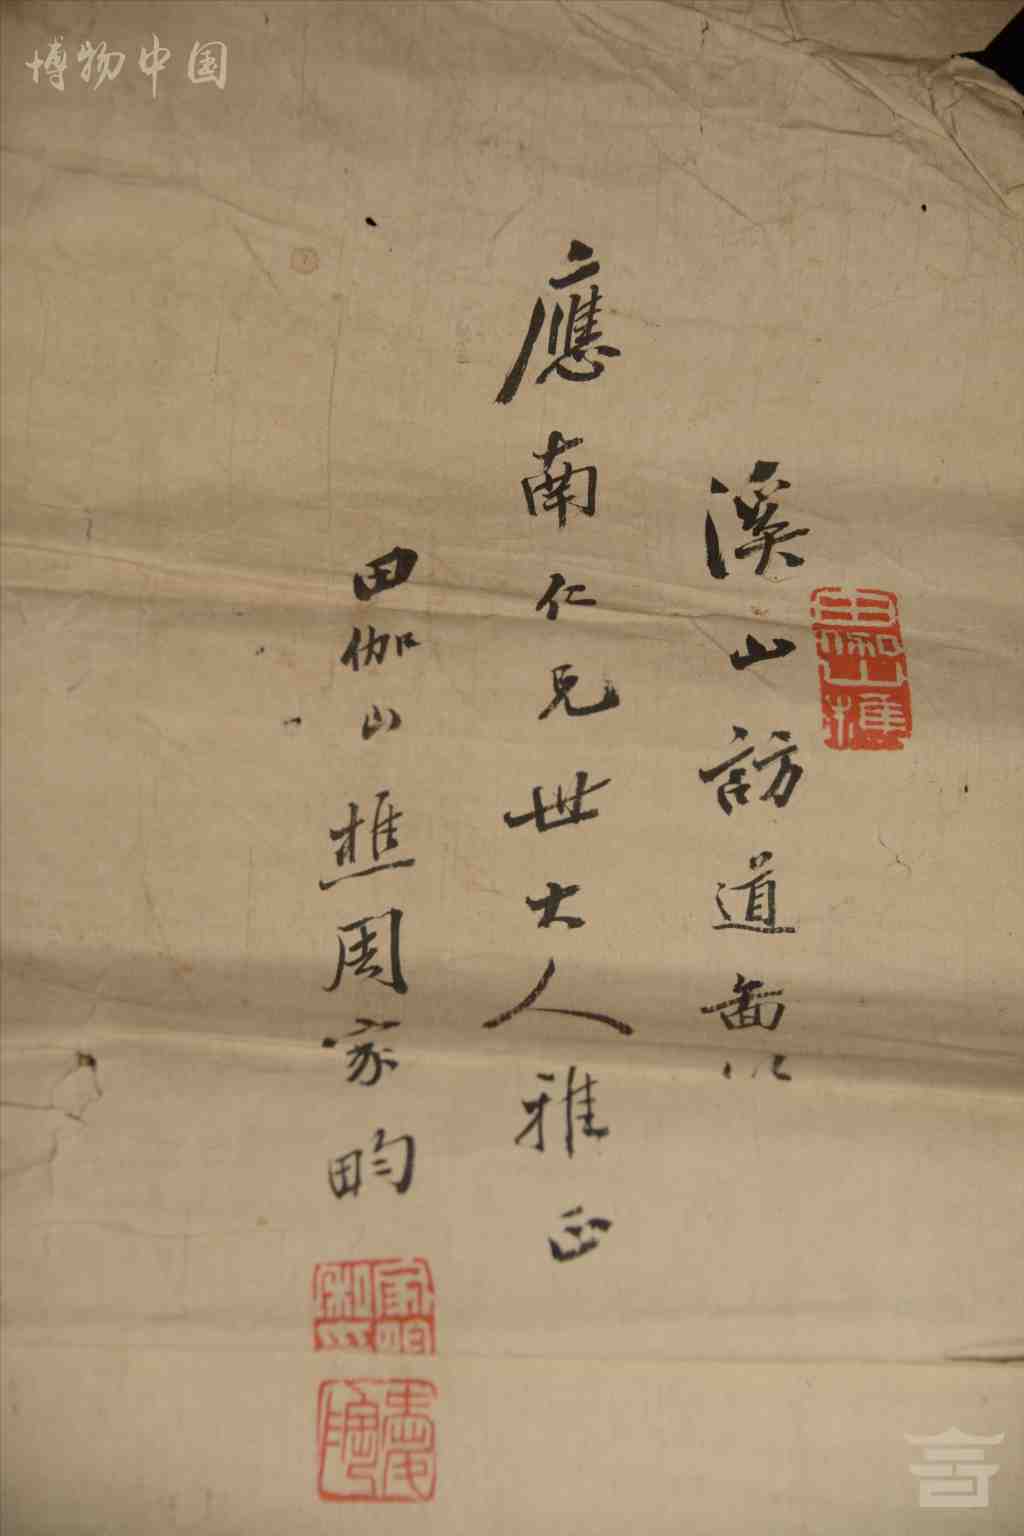 博物中国
溪山訪道啚以
應南仁兄世大人雅正
田伽山樵周家畇